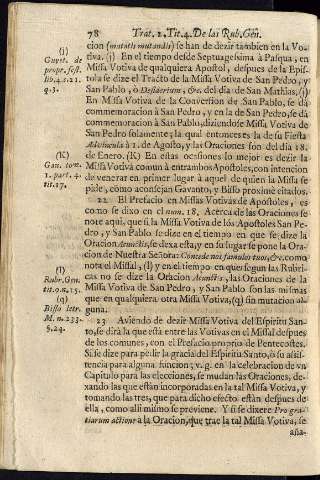 78 Trat. 2. Tit. 4. De las Rub. Gen.
cion (mutatis mutandis) se han de dezir tambien en la Vo-
tiva. (i) En el tiempo desde Septuagesima à Pasqua, en
Missa Votiva de qualquiera Apostol, despues de la Epis-
tola se dize el Tracto de la Missa Votiva de San Pedro, y
San Pablo, ò Desiderium, &c. del dia de San Mathias, (i)
En Missa Votiva de la Conversion de San Pablo, se dà
commemoracion à San Pedro, y en la de San Pedro, se dà
commemoracion à San Pablo, diziendose Missa Votiva de
San Pedro solamente; la qual entonces es la de su Fiesta
Advincula à 1. de Agosto, y las Oraciones son del dia 18.
de Enero. (K) En estas ocasiones lo mejor es dezir la
Missa Votiva comun à entrambos Apostoles, con intencion
de venerar en primer lugar à aquel de quien la Missa se
pide, como aconsejan Gavanto, y Bisso proximè citados.
22 El Prefacio en Missas Votivas de Apostoles, es
como se dixo en el num. 18. Acerca de las Oraciones se
note aqui, que si la Missa Votiva de los Apostoles San Pe-
dro, y San Pablo se dize en el tiempo en que se dize la
Oracion Acunctis, se dexa esta, y en su lugar se pone la Ora-
cion de Nuestra Señora: Concede nos famulos tuos, &c. como
nota el Missal, (l) y en el tiempo en que segun las Rubri-
cas no se dize la Oracion Acunctis, las Oraciones de la
Missa Votiva de San Pedro, y San Pablo son las mismas
que en qualquiera otra Missa Votiva, (q) sin mutacion al-
guna.
23 Aviendo de dezir Missa Votiva del Espiritu San-
to, se dirà la que està entre las Votivas en el Missal despues
de los comunes, con el Prefacio proprio de Pentecostes.
Si se dize para pedir la gracia del Espiritu Santo, ò su assis-
tencia para alguna funcion; v. g. en la celebracion de un
Capitulo para las elecciones, se mudan las Oraciones, de-
xando las que estàn incorporadas en la tal Missa Votiva, y
tomando las tres, que para dicho efecto estàn despues de
ella, como alli mismo se previene. Y si se dixere Pro gra-
tiarum actione à la Oracion, que trae la tal Missa Votiva, se
aña-
(i)
Guyet. de
propr. fest.
lib. 4. c. 21.
q. 3.
(K)
Gav. tom.
1. part. 4.
tit. 17.
(l)
Rubr. Gen.
(q)
Bisso letr.
M. n. 233.
§. 24.